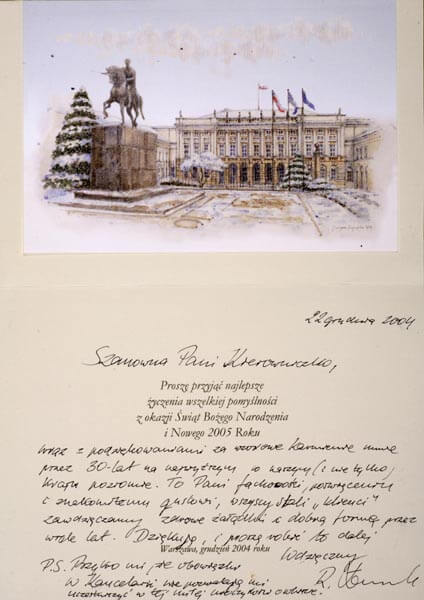 22 grudnia 2004
Szanowna Pani Kierowniczko,
Proszę przyjąć najlepsze
życzenia wszelkiej pomyślności
z okazji Świąt Bożego Narodzenia
i Nowego 2005 Roku
wraz z podziękowaniami za wzorowe karmienie mnie
przez 30-lat na najwyższym, o naszym (i nie tylko)
kraju poziomie. To Pani fachowości, poświęceniu
i znakomitemu gustowi, wszyscy stali "klienci"
zawdzięczamy zdrowe żołądki i dobrą formę przez
wiele lat. Dziękuję, i proszę robić to dalej
Warszawa, grudzień 2004 roku
Wdzięczny
P.S. Przykro mi, że obowiązki
w Kancelarii nie pozwalają mi
uczestniczyć w tej miłej uroczystości